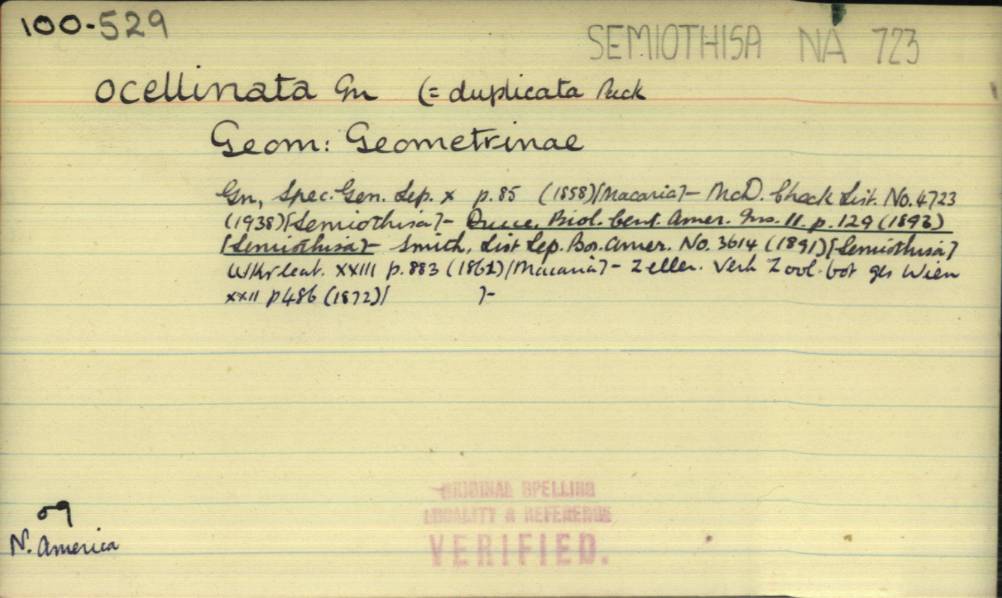 100-529
SEMIOTHISA NA 723
ocellinata Gn (= duplicata Pack
Geom: Geometrinae
Gn, Spec. Gen. Lep. x p.85 (1858)[Macaria]- McD. Check List. No. 4723
(1938)[Semiothisa]- Druce, Biol. Cent. Amer. Ins. II. p. 129 (1893)
[Semiothisa]- Smith. List Lep. Bor. Amer. No. 3614 (1891)[Semiothisa]
Wlkr Cat. XXIII p. 883 (1861)[Macaria]- Zeller. Verh Zool-bot ges Wien
xxII p486 (1872)[ ]-
N. America
ORIGINAL SPELLING
LOCALITY & REFERENCE
VERIFIED.